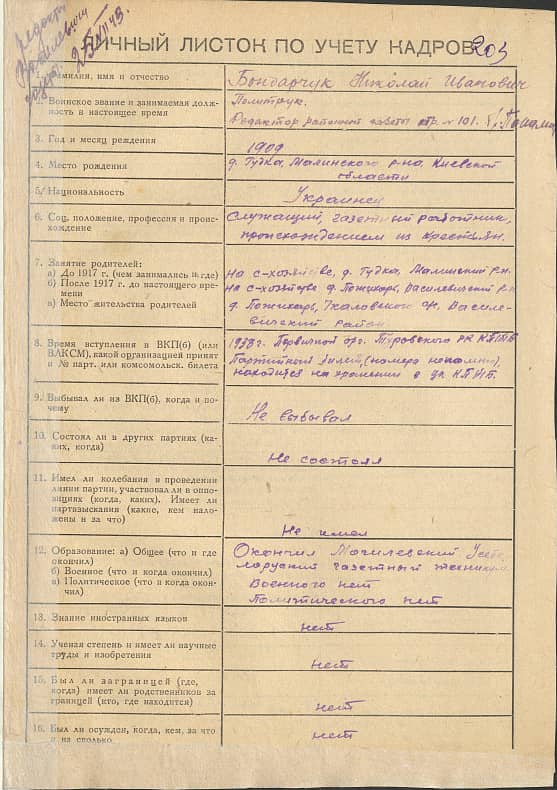 ЛИЧНЫЙ ЛИСТОК ПО УЧЕТУ КАДРОВ 203
Фамилия, имя и отчество
Бондарчук Николай Иванович
2. Воинское звание и занимаемая долж-
ность в настоящее время
Политрук.
Редактор районной газеты отр. № 101.
3. Год и месяц реждения
1909
4. Место рождения
д. Гудка, Малинского р-на, Киевской
области
5. Национальность
Украинец
6. Соц. положение, профессия и проис-
хождение
Служащий, газетный работник,
происхождением из крестьян.
7. Занятие родителей:
а) До 1917 г. (чем занимались и где)
б) После 1917 г. до настоящего вре-
мени
в) Место жительства родителей
на с-хозяйстве, д. Гудка, Малинский р-н.
на с-хозяйстве д. Пожихарь, Василевичский р-н
д. Пожихарь, Василе-
вичский район
8. Время вступления в ВКП(б) (или
ВЛКСМ), какой организацией принят
и № парт. или комсомольск. билета
1938 г. Первичной орг. Туровского РК КП(б)Б
Партийный билет, (номера непомню),
находится на хранении в ЦК КП(б)Б.
9. Выбывал ли из ВКП(б), когда и по-
чему
Не выбывал
10. Состоял ли в других партиях (ка-
ких, когда)
Не состоял
11. Имел ли колебания в проведении
линии партии, участвовал ли в оппо-
зициях (когда, каких). Имеет ли
партвзыскания (какие, кем нало-
жены и за что)
Не имел
12. Образование: а) Общее (что и где
окончил)
б) Военное (что и когда окончил)
в) Политическое (что и когда окон-
чил)
Окончил Могилевский
газетный техникум
Военного нет
Политического нет
13. Знание иностранных языков
нет
14. Ученая степень и имеет ли научные
труды и изобретения
нет
15. Был ли заграницей (где,
когда) имеет ли родственников за
границей (кто, где находится)
нет
16. Был ли осужден, когда, кем, за что
и на сколько
нет